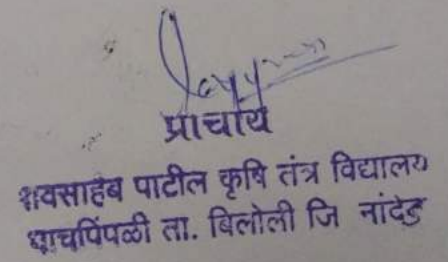 प्राचार्य
रावसाहेब पाटील कृषि तंत्र विद्यालय
पाचपिंपळी ता. बिलोली जि नांदेड